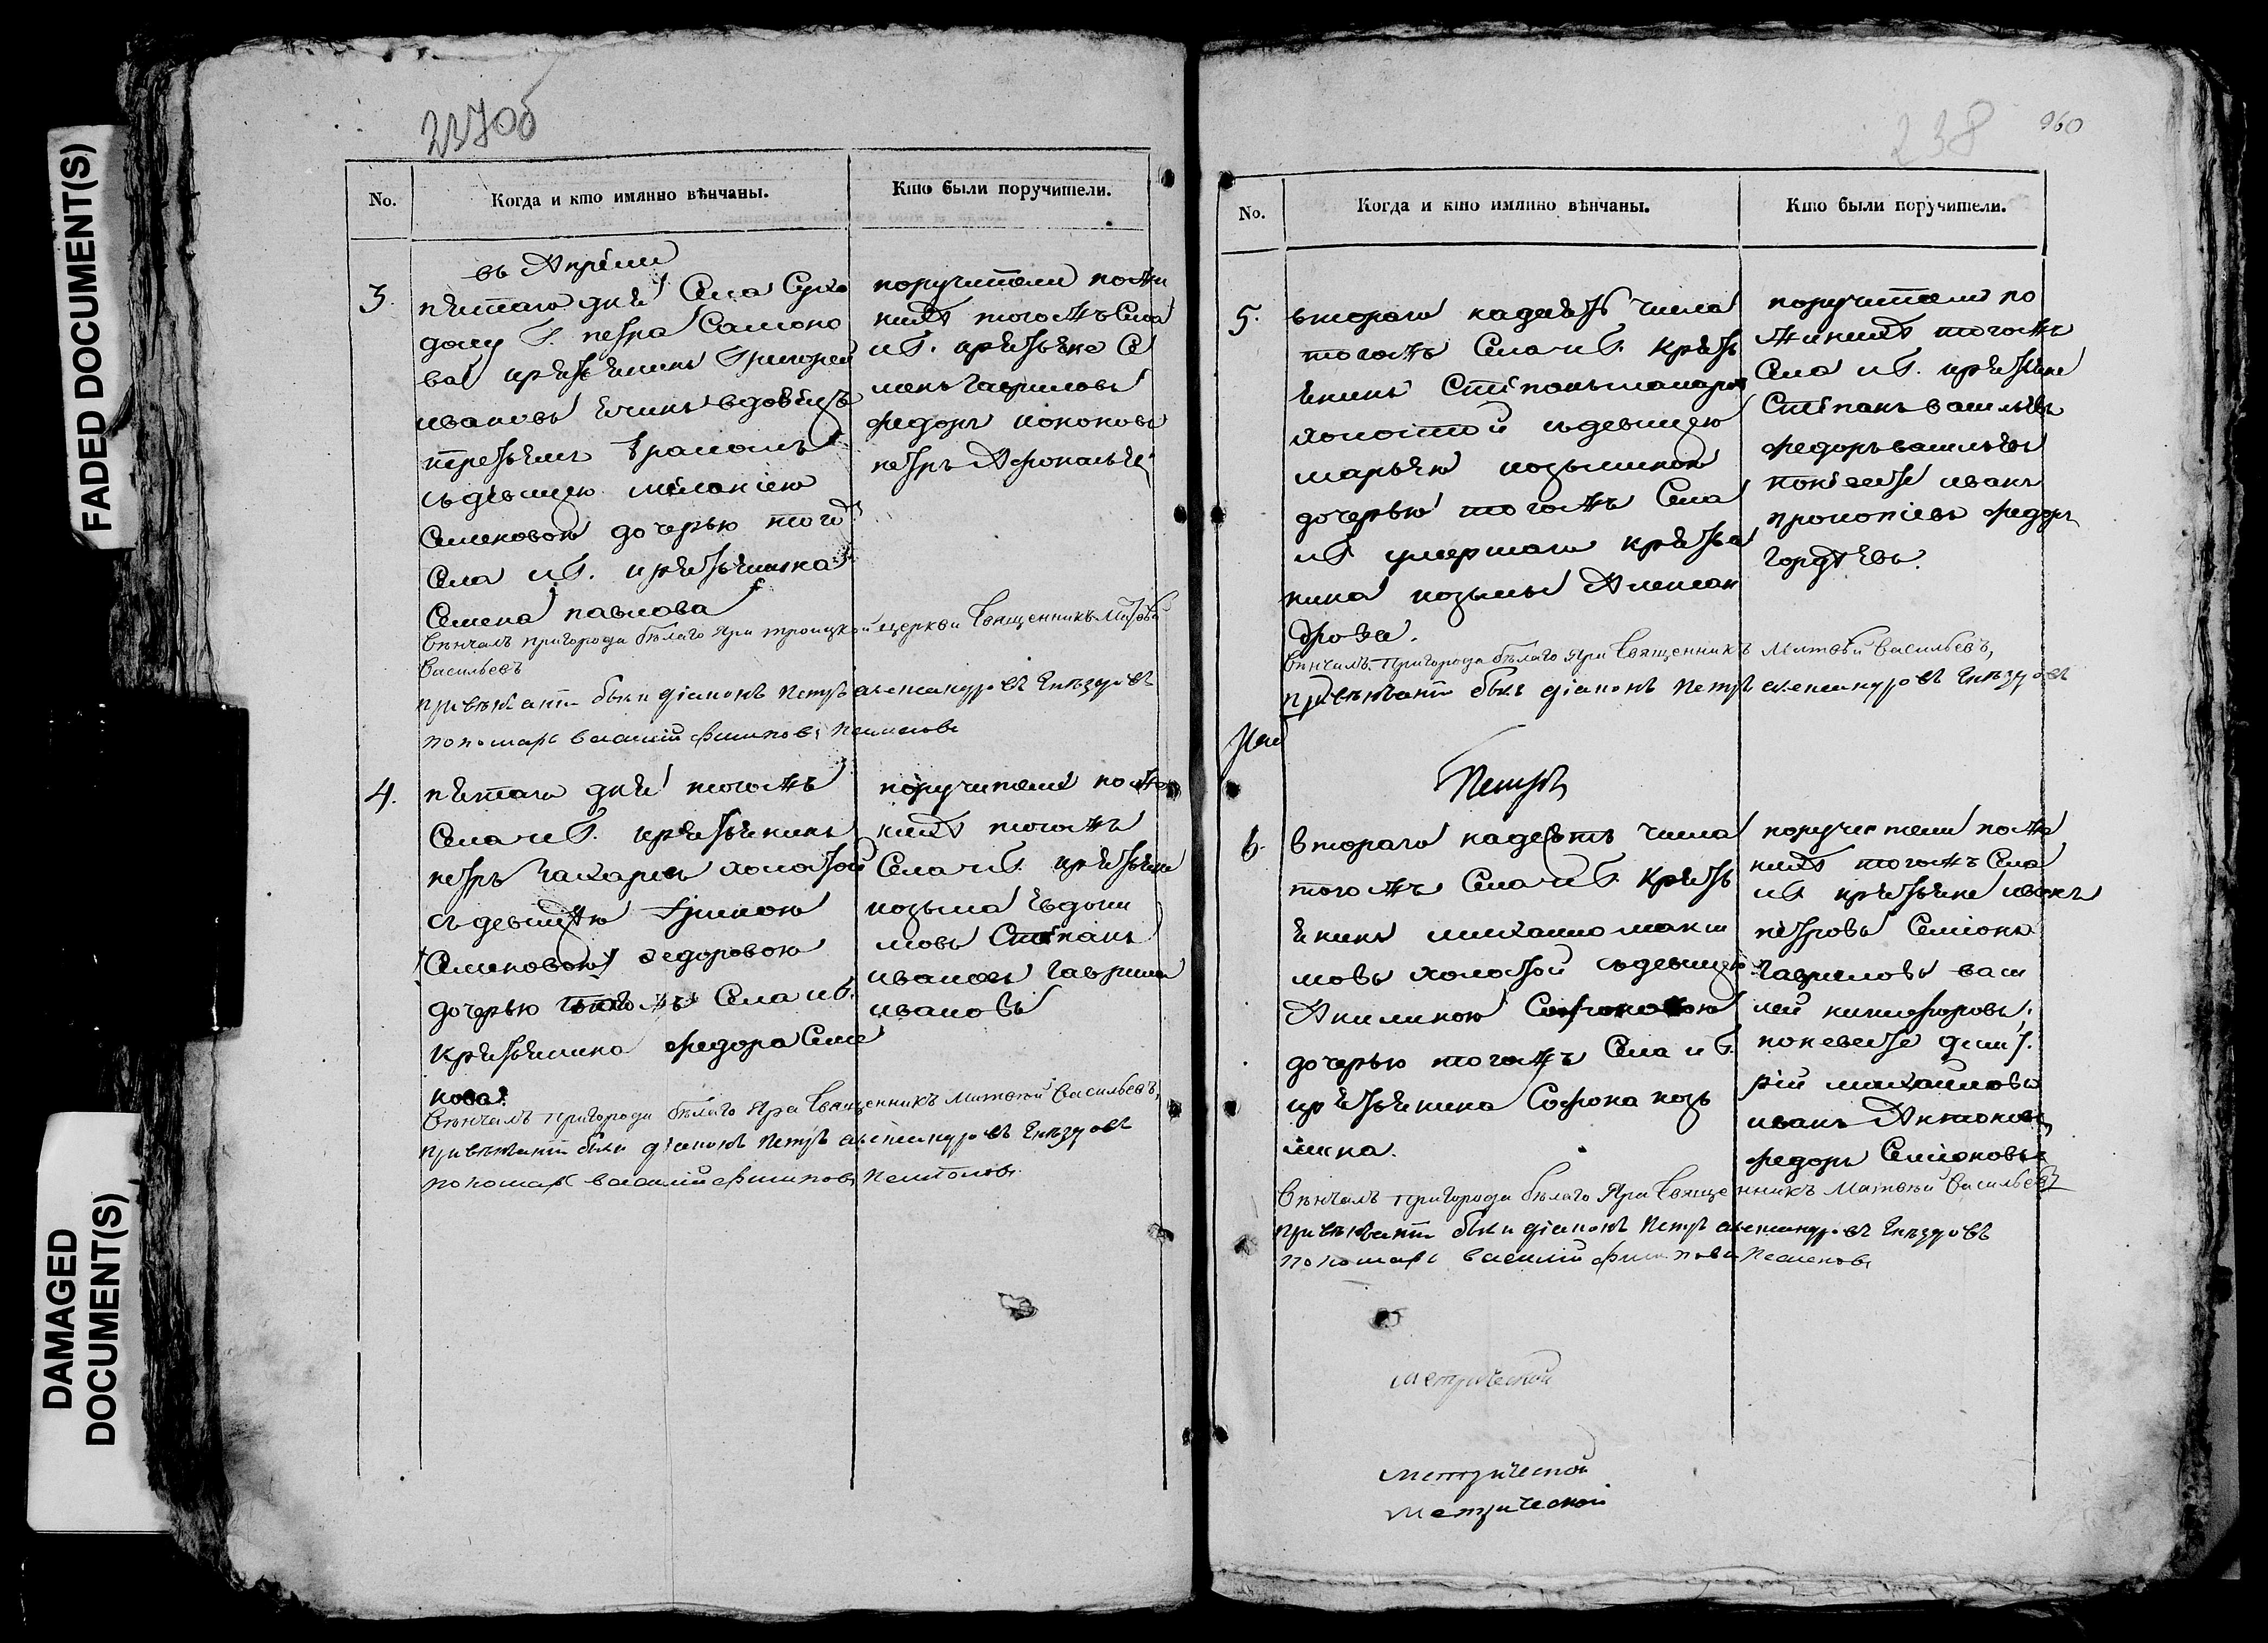 FADED DOCUMENT(S)
DAMAGED
DOCUMENT(S)
237об
No.
Когда и кто имянно вѣнчаны.
Кто были поручители.
въ Апрѣли
3.
пятаго дня Села Сухо
долу Г. петра Самоно
ва крестьянинъ Григорей
ивановъ вдовецъ
третьимъ бракомъ
съ девицею меланiею
Семеновою дочерью того
Села и Г. крестьянина
Семена павлова
поручители по же
нихѣ тогожъ Села
и Г. крестьяне Се
менъ Гавриловъ
федоръ кононовъ
петръ Афонасьев
Вѣнчалъ пригорода бѣлаго Яра троицкой церкви Священникъ Матѳѣй
Васильевъ
при вѣнчанiи были дiаконъ Петръ александровъ Гнѣздовъ
пономарь василiй филиповъ
4.
пятаго дня тогожъ
Села и Г. крестьянинъ
петръ Захаровъ холостой
съ девицею Ириною
Семеновою федоровою
дочерью тогожъ Села и Г.
крестьянина федора Семе
нова.
поручители по же
нихѣ тогожъ
Села и Г. крестьяне
козьма Евдоки
мовъ Степанъ
ивановъ Гаврила
ивановъ
Вѣнчалъ пригорода бѣлаго Яра Священникъ Матѳѣй Васильевъ,
при вѣнчанiи были дiаконъ Петръ александровъ Гнѣздовъ
пономарь василiй филиповъ
238
960
No.
Когда и кто имянно вѣнчаны.
Кто были поручители.
5.
втораго надесять числа
тогожъ Села и Г. Кресть
янинъ Степанъ макаров
холостой съ девицею
марьею козьминою
дочерью тогожъ Села
и Г. умершаго крестья
нина козьмы Алексан
дрова.
поручители по
женихѣ тогожъ
Села и Г. крестьяне
Степанъ васильевъ
федоръ васильевъ
по невесте иванъ
прокопiевъ федоръ
гордѣевъ.
Вѣнчалъ пригорода бѣлаго Яра Священникъ Матѳѣй Васильевъ,
при вѣнчанiи былъ дiаконъ Петръ александровъ Гнѣздовъ
Петръ
6.
втораго надесять числа
тогожъ Села и Г. Кресть
янинъ михаила макси
мовъ холостой съ девицею
Акилиною Софроновою
дочерью тогожъ Села и Г.
крестьянина Софона козь
мина.
поручители по же
нихѣ тогожъ Села
и Г. крестьяне иванъ
петровъ Семенъ
гавриловъ васи
лей никифоровъ,
по невесте дмит
рiй михайловъ
иванъ Антоновъ
федоръ Семеновъ
Вѣнчалъ пригорода бѣлаго Яра Священникъ Матѳѣй Васильевъ
при вѣнчанiи были дiаконъ Петръ александровъ Гнѣздовъ
пономарь василiй филиповъ
метрической
метрической
метрической